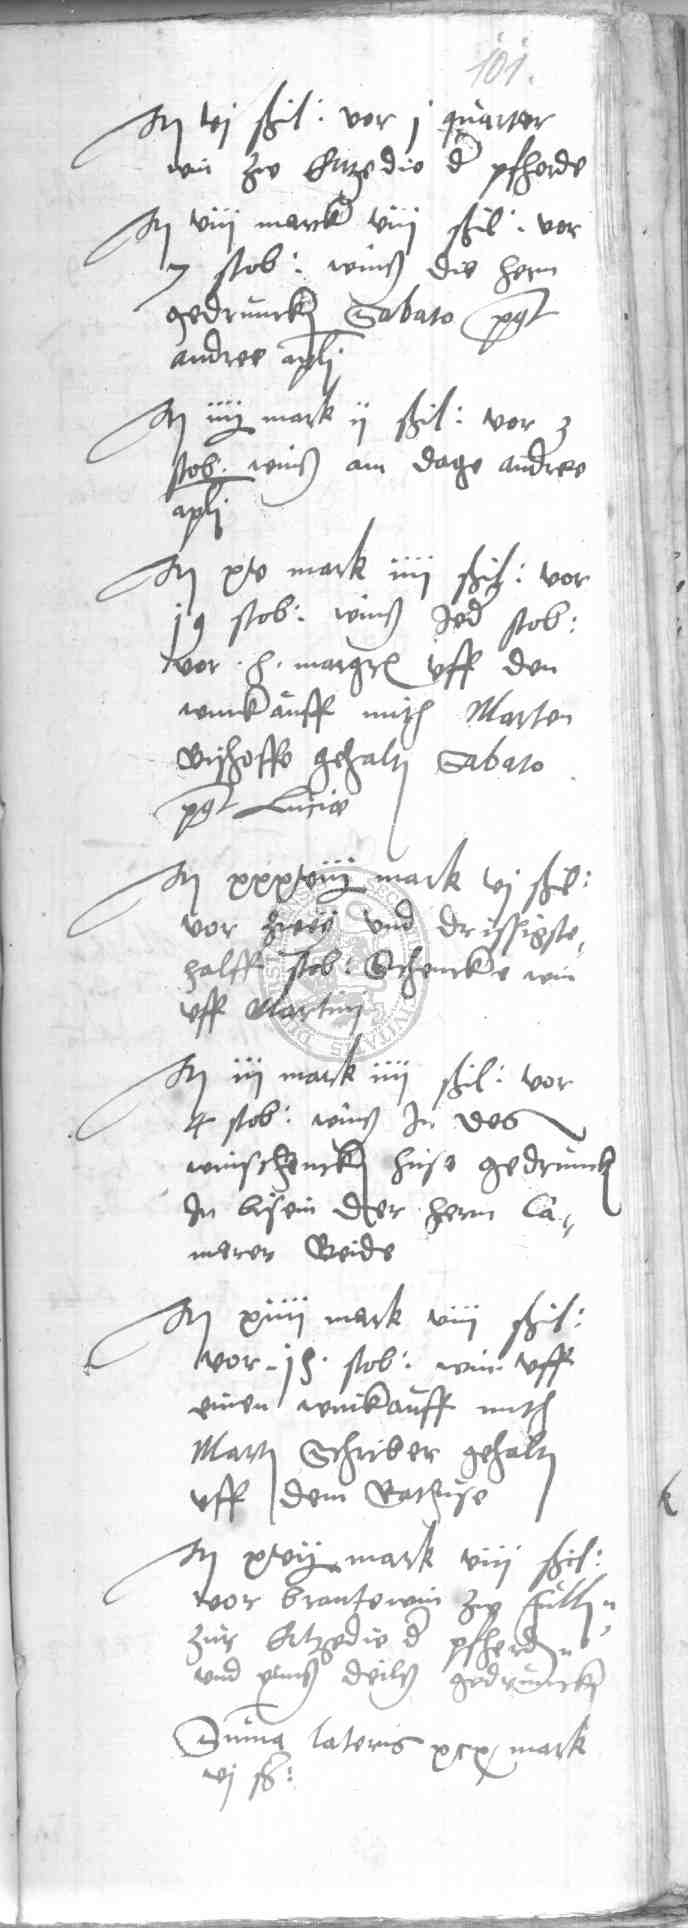 101.
It vj ßhil: vor j quarter
win zw Ertzedie d pfherde
It viij marck viij ßhil: vor
7 stob: winß die hern
gedrunck Sabato pgt
andree apli
It iiij mark ij ßhil: vor 3
stob: winß am dage andree
apli
It xv mark iiij ßhil: vor
19 stob: winß Jed stob:
vor h. margr uff den
winkauff mith Marten
Bishoffe gehalt Sabato
pgt Lucie
It xxxviij mark vj ßhil:
vor zweij und drissigste
halff stob: Schencke win
uff Martinj
It iij mark iiij ßhil: vor
4 stob: winß In des
winschenck huse gedrunck
In bisein der hern Ca-
merer Beide
It xiiij mark viij ßhil:
vor 18 stob: win uff
einen winkauff mith
Mart Schriber gehalt
uff dem Rathuse
It xvij mark viij ßhil:
vor brantewin zw
zur Ertzedie d pferde
und deilß gedrunck
Suma lateris xcix mark
vj ß: